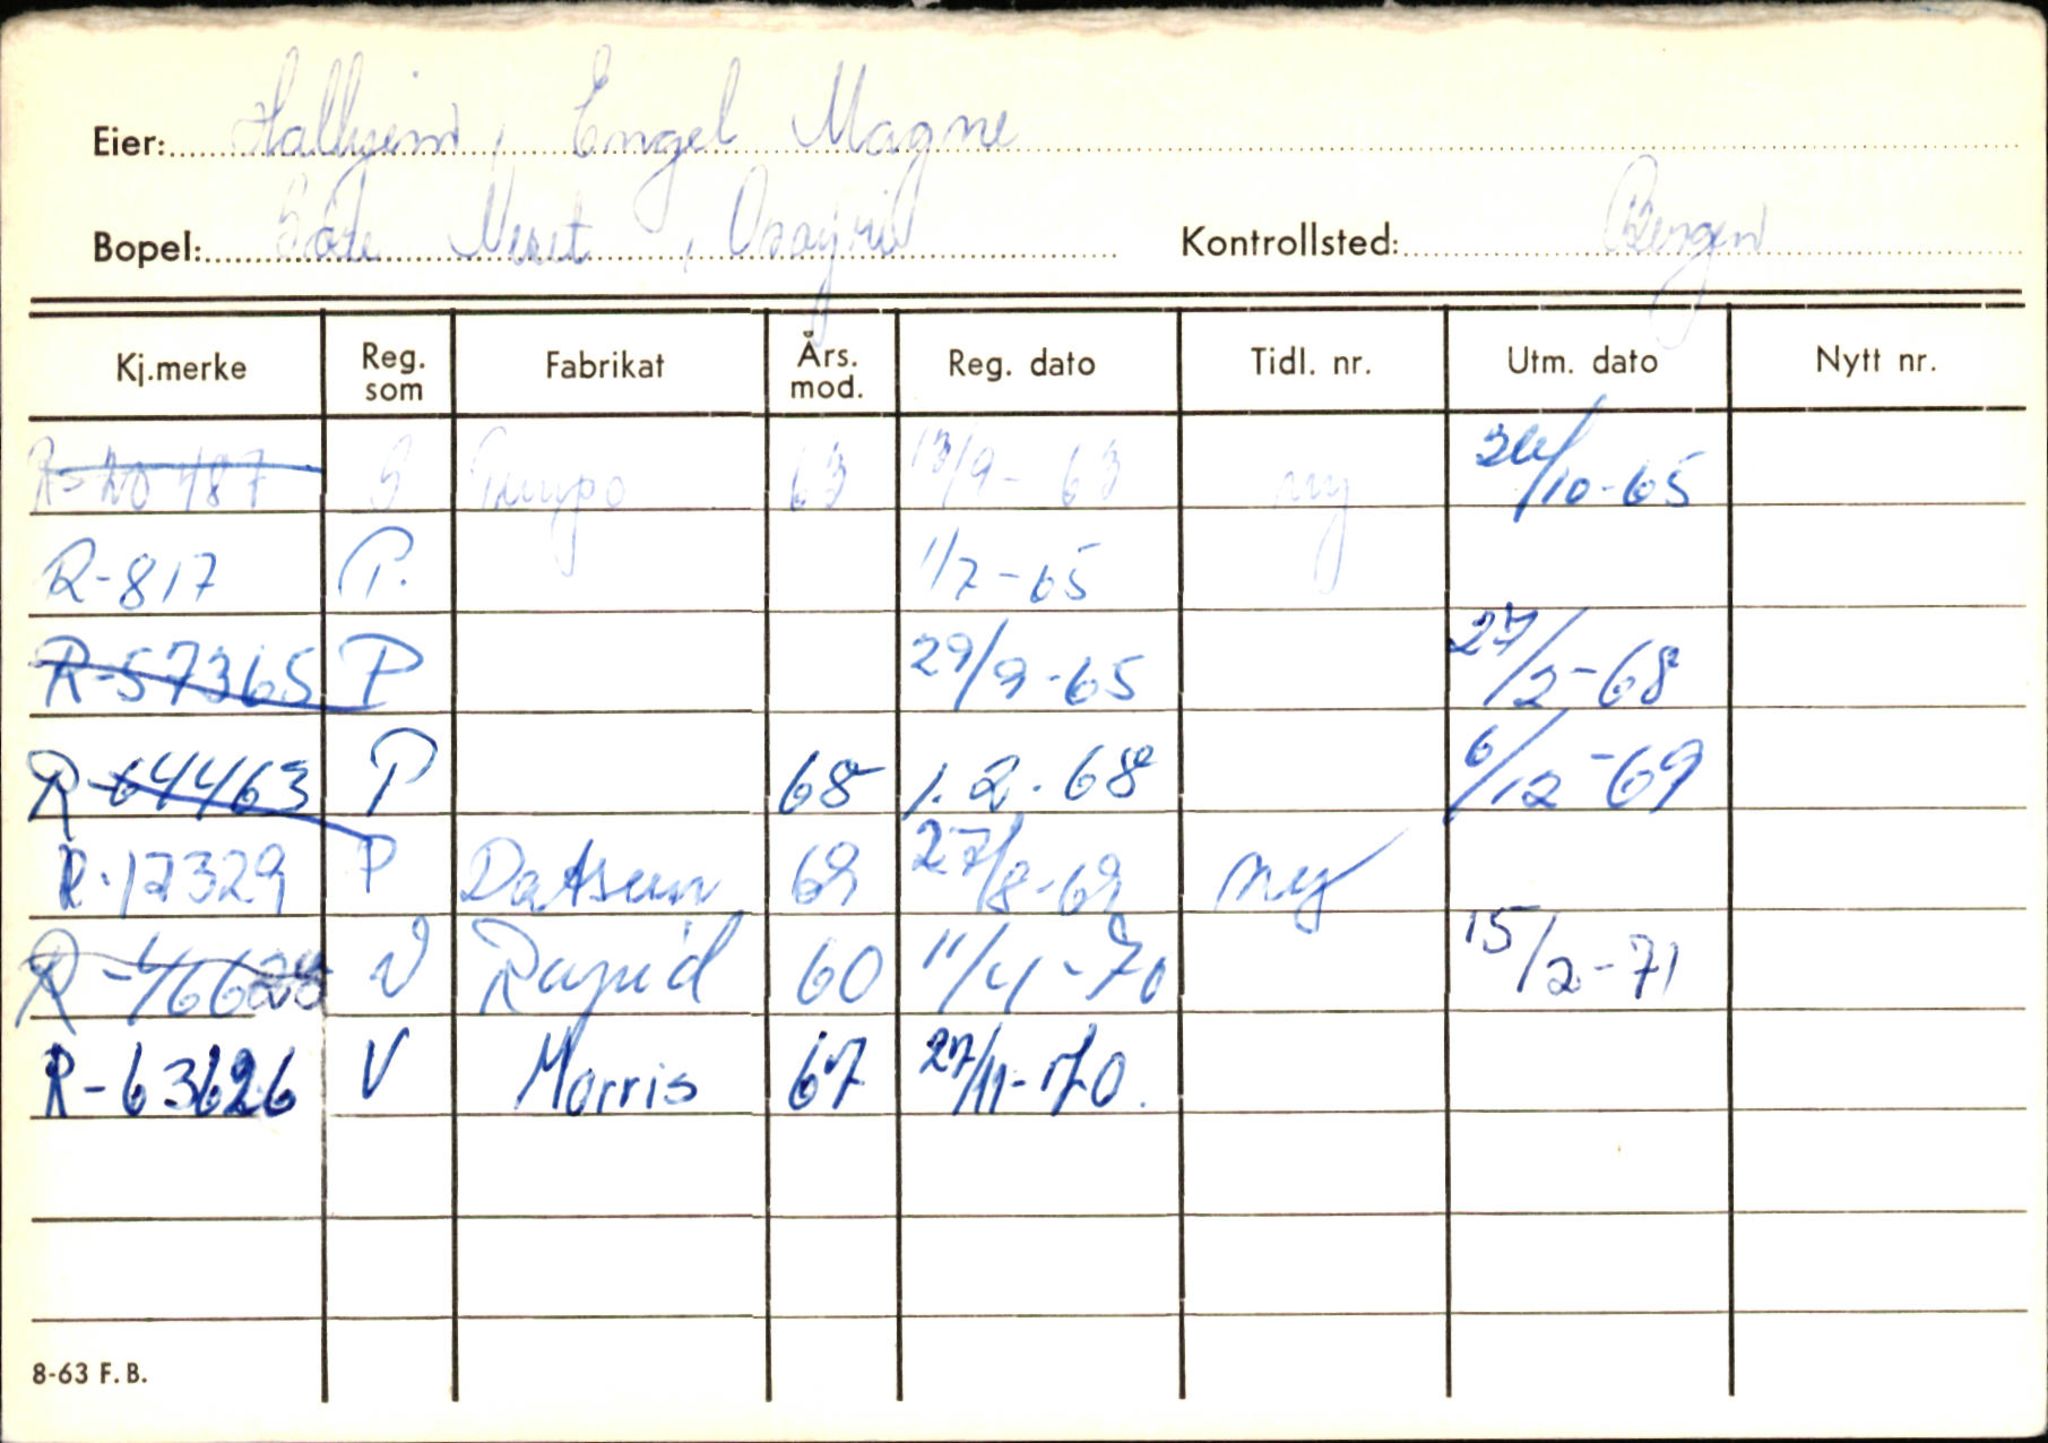 Eier: Halhjem, Engel Magne
Bopel: Neset, Osøyro Kontrollsted: Bergen
Kj.merke Reg. som Fabrikat Års. mod. Reg. dato Tidl. nr. Utm. dato Nytt nr.
R-20487 Tempo 63 13/9-63 ny 26/10-65
R-817 P. 1/7-65
R-57365 P 29/9-65 27/2-68
R-64463 P 68 1.2.68 6/12-69
R-17329 P Datsun 69 27/8-69 ny
R-46628 V Rapid 60 11/4-70 15/2-71
R-63626 V Morris 67 27/11-70.
8-63 F.B.